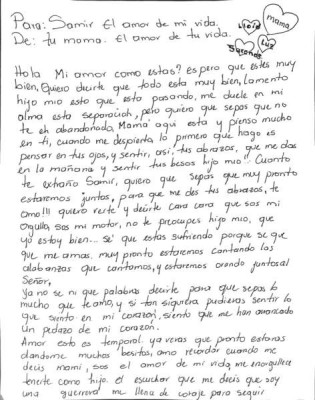 Para: Samir El amor de mi vida.
De: tu mama. El amor de tu vida.
mama
Luz
Hola Mi amor como estas? es pero que estes muy
bien, Quiero decirte que todo esta muy bien, lamento
hijo mio esto que esta pasando, me duele en mi
alma esta separación, pero quiero que sepas que no
te eh abandonado, Mamá aqui esta y pienso mucho
en ti, cuando me despierto, lo primero que hago es
pensar en tus ojos, y sentir, asi, tus abrazos, que me das
en la mañana y sentir tus besos hijo mio!! Cuanto
te extraño Samir, quiero que sepas que muy pronto
estaremos juntos, para que me des tus abrazos, te
amo!!! quiero verte y decirte cara cara que sos mi
orgullo, sos mi motor, no te preocupes hijo mio, que
yo estoy bien... sé que estas sufriendo porque se que
que me amas. muy pronto estaremos cantando las
alabanzas que cantamos, y estaremos orando juntos al
Señor,
Ya no se ni que palabras decirte para que sepas lo
mucho que te amo, y si tan siquiera pudieras sentir lo
que siento en mi corazón, siento que me han arrancado
un pedazo de mi corazón.
Amor esto es temporal. ya veras que pronto estaras
dandome muchos besitos, amo recordar cuando me
decis mami, sos el amor de mi vida, me enorgullece
tenerte como hijo. el escuchar que me decis que soy
una guerrera me llena de coraje para seguir